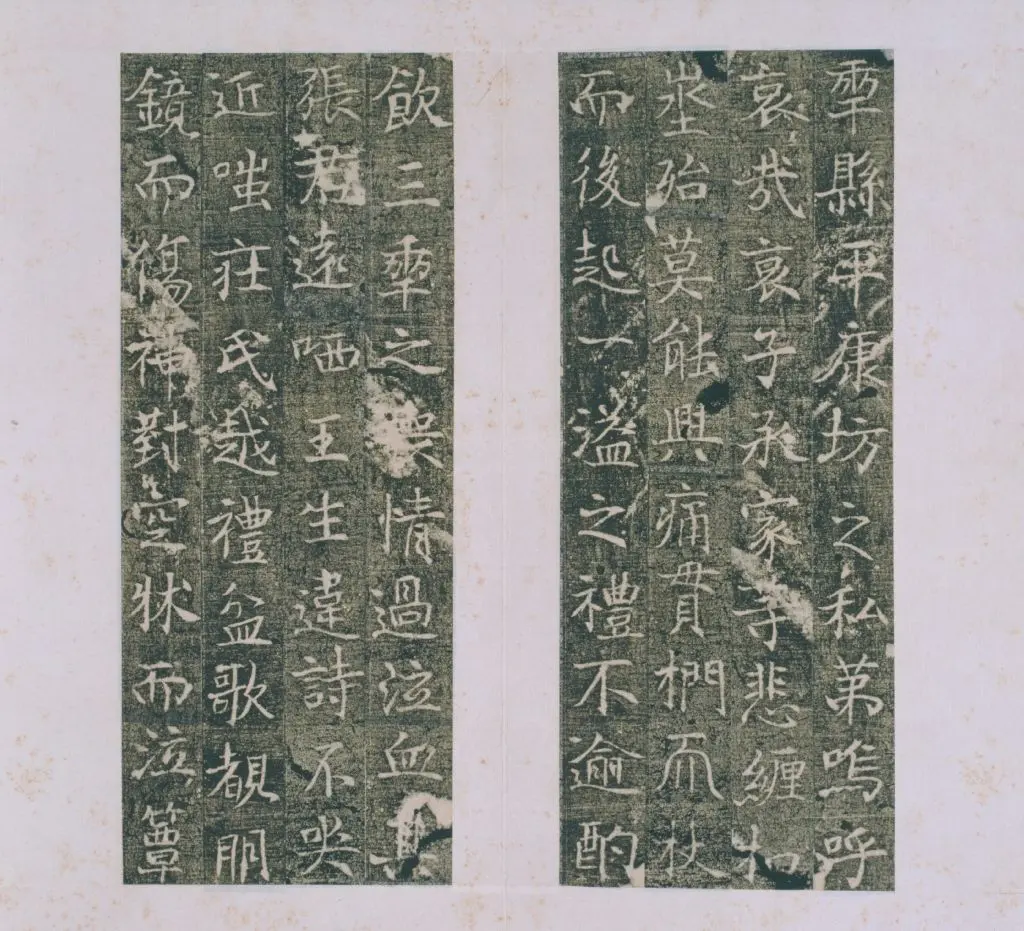 年縣平康坊之私第嗚呼
哀哉哀子承家等悲纏扣
埊殆莫能興痛貫櫚而杖
而後起一溢之禮不逾酌
飲三年之喪情過泣血其
張君遠哂王生違詩不哭
近嗤莊氏越禮盆歌覩明
鏡而傷神對空牀而泣簟